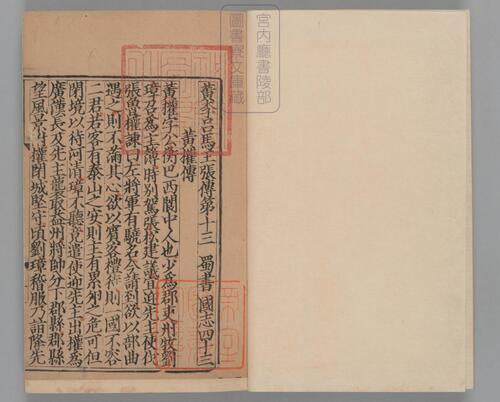 黄李呂馬王張傳第十三　蜀書　國志四十三
黄權傳
黄權字公衡巴西閬中人也少爲郡吏州牧劉
璋召爲主簿時別駕張松建議宜迎先主使伐
張魯權諫曰左將軍有驍名今請到欲以部曲
遇之則不滿其心欲以賓客禮待則一國不容
二君若客有泰山之安則主有累卵之危可但
閉境以待河清璋不聽竟遣使迎先主出權爲
廣漢長及先主襲取益州將帥分下郡縣郡縣
望風景附權閉城堅守須劉璋稽服乃詣降先
宮内廳書陵部
圖書寮文庫藏